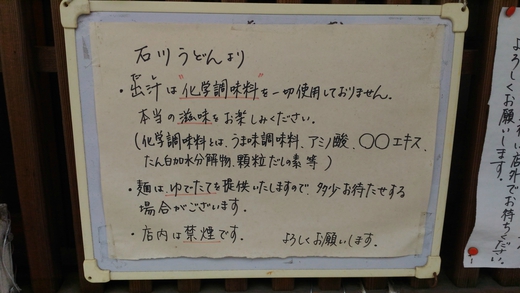 石川うどんより
・出汁は"化学調味料"を一切使用しておりません.
本当の滋味をお楽しみください.
(化学調味料とは、うま味調味料、アミノ酸、〇〇エキス、
たん白加水分解物、顆粒だしの素 等)
・麺はゆでたてを提供いたしますので、多少お待たせする
場合がございます.
・店内は禁煙です.
よろしくお願いします.
店外でお待ちください。
よろしくお願いします。